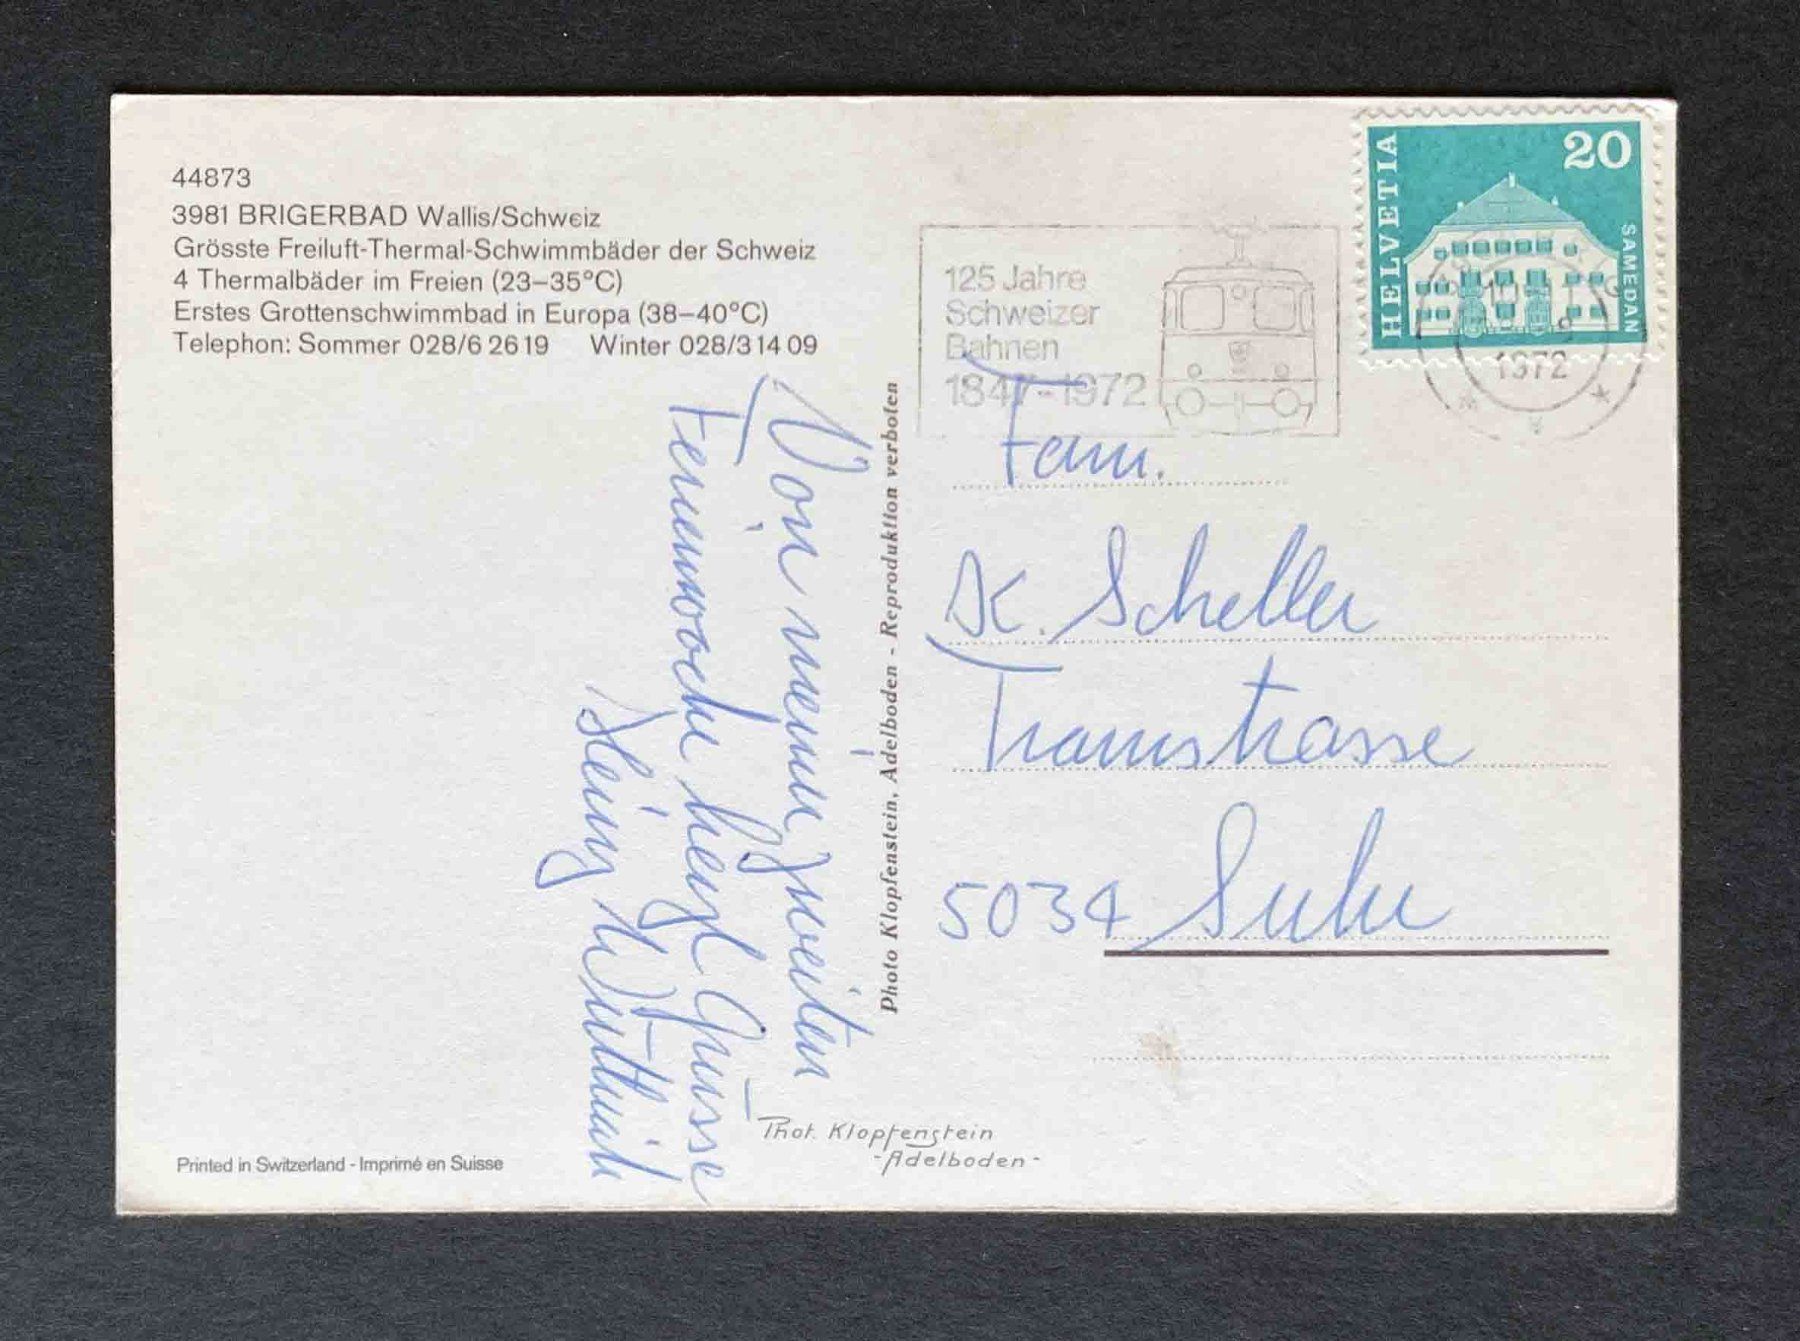 44873
3981 BRIGERBAD Wallis/Schweiz
Grösste Freiluft-Thermal-Schwimmbäder der Schweiz
4 Thermalbäder im Freien (23–35°C)
Erstes Grottenschwimmbad in Europa (38–40°C)
Telephon: Sommer 028/6 26 19 Winter 028/3 14 09
Von meiner zweiten
Ferienwoche herzl. Grüsse
Heinz
Photo Klopfenstein, Adelboden - Reproduktion verboten
Phot. Klopfenstein
-Adelboden-
Printed in Switzerland - Imprimé en Suisse
125 Jahre
Schweizer
Bahnen
1847-1972
HELVETIA
20
SAMEDAN
1972
Fam.
K. Scheller
Tramstrasse
5034 Suhr